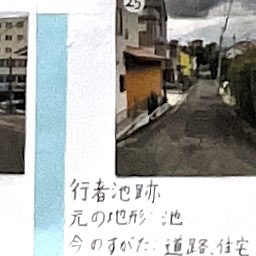 25
行者池跡
元の地形:池
今のすがた:道路、住宅